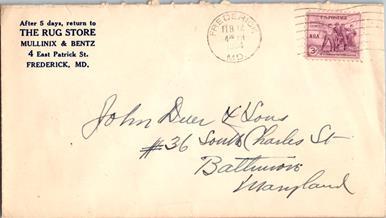 After 5 days, return to
THE RUG STORE
MULLINIX & BENTZ
4 East Patrick St.
FREDERICK, MD.
FREDERICK
FEB
MD.
U.S. POSTAGE
NRA
3
John Deer & Sons
#36 South Charles St
Baltimore
Maryland